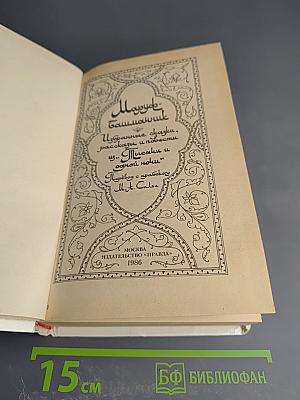 Маруф-
башмачник
Избранные сказки,
рассказы и повести
из „Тысячи и
одной ночи“
Перевод с арабского
М. А. Салье
МОСКВА
ИЗДАТЕЛЬСТВО «ПРАВДА»
1986
15 см
БФ БИБЛИОФАН